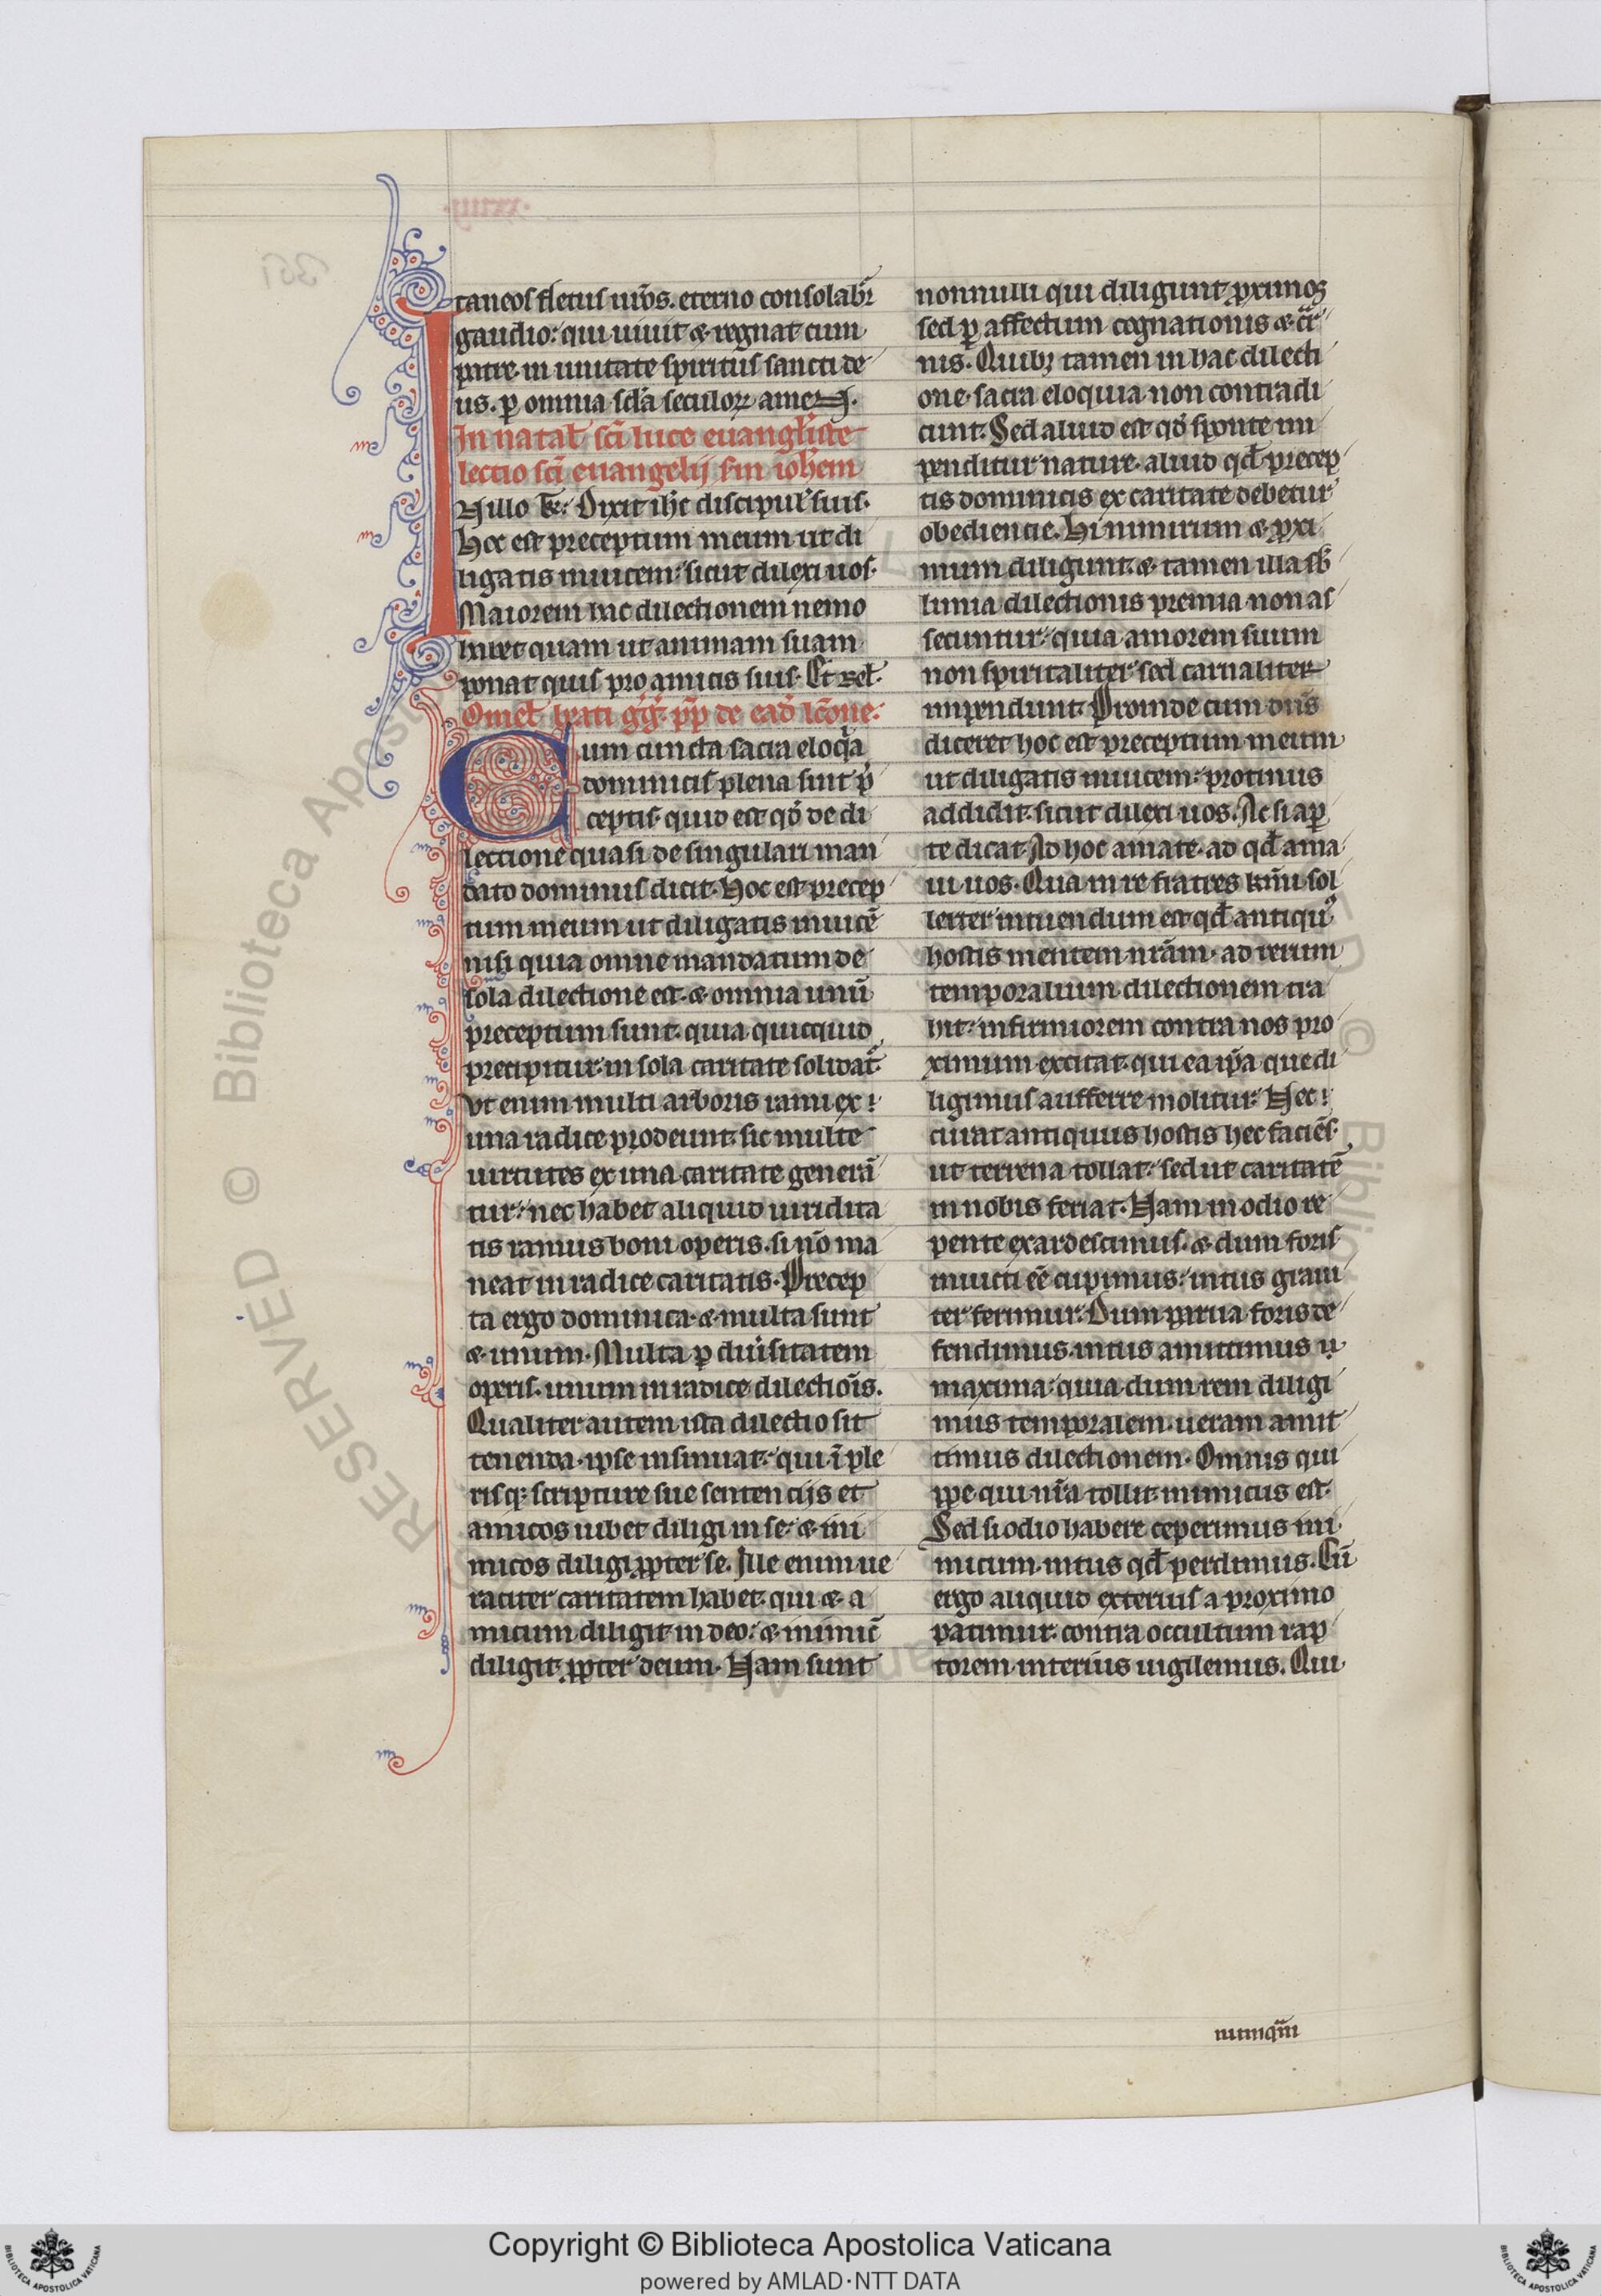 taneos fletus nr̄os. eterno consolabr̄
gaudio: qui uiuit & regnat cum
patre in unitate spiritus sancti de
us. ꝑ omnia scl̄a seculoꝝ amen.
In natal̄ sc̄i luce euangl̄iste
lectio sc̄i euangelij sm̄ ioh̄em
N illo t̄e: Dixit ih̄c discipul̄ suis.
Hoc est preceptum meum ut di
ligatis inuicem: sicut dilexi uos.
Maiorem hac dilectionem nemo
habet quam ut animam suam
ponat quis pro amicis suis. Et rel̄.
Omel̄ beati gḡ. pp̄ de ead̄ lc̄one:
Cum cuncta sacra eloqͣa
dominicis plena sint p̄
ceptis. quid est qđ de di
lectione quasi de singulari man
dato dominus dicit. Hoc est precep
tum meum ut diligatis inuicē
nisi quia omne mandatum de
sola dilectione est. & omnia unū
preceptum sunt. quia quicquid
precipitur. in sola caritate solidat̄.
Vt enim multi arboris rami ex
una radice prodeunt. sic multe
uirtutes ex una caritate generā
tur: nec habet aliquid uiridita
tis ramus boni operis. si nō ma
neat in radice caritatis. Precep
ta ergo dominica. & multa sunt
& unum. Multa ꝑ diu̾sitatem
operis. unum in radice dilectiōis.
Qualiter autem ista dilectio sit
tenenda. ipse insinuat: qui ī ple
risqꝫ scripture sue sentencijs et
amicos iubet diligi in se: & ini
micos diligi ꝓpter se. Ille enim ue
raciter caritatem habet. qui & a
micum diligit in deo: & inimic̄
diligit ꝓpter deum. Nam sunt
nonnulli qui diligunt ꝓximos
sed ꝑ affectum cognationis & car
nis. Quibꝫ tamen in hac dilecti
one. sacra eloquia non contradi
cunt. Sed aliud est qđ sponte im
penditur nature. aliud qđ precep
tis dominicis ex caritate debetur
obediencie. Hi nimirum & ꝓxi
mum diligunt. & tamen illa sb̄
limia dilectionis premia non as
secuntur: quia amorem suum
non spiritaliter sed carnaliter
impendunt. Proinde cum dn̄s
diceret hoc est preceptum meum
ut diligatis inuicem: protinus
addidit. sicut dilexi uos. Ac si aꝑ
te dicat. Ad hoc amate. ad qđ ama
ui uos. Qua in re fratres km̄i sol
lerter intuendum est qđ antiquꝰ
hostis mentem nr̄am. ad rerum
temporalium dilectionem tra
hit: infirmiorem contra nos pro
ximum excitat. qui ea ip̄a que di
ligimus aufferre molitur. Nec
curat antiquus hostis hec faciēs.
ut terrena tollat: sed ut caritatē
in nobis feriat. Nam in odio re
pente exardescimus. & dum foris
inuicti eē cupimus: intus graui
ter ferimur. Dum parua foris de
fendimus. intus amittimus
maxima: quia dum rem diligi
mus temporalem. ueram amit
timus dilectionem. Omnis qui
ppe qui nr̄a tollit. inimicus est.
Sed si odio habere ceperimus ini
micum. intus qđ perdimus. Cū
ergo aliquid exterius a proximo
patimur. contra occultum rap
torem interius uigilemus. Qui
numqͣm
Copyright © Biblioteca Apostolica Vaticana
powered by AMLAD·NTT DATA